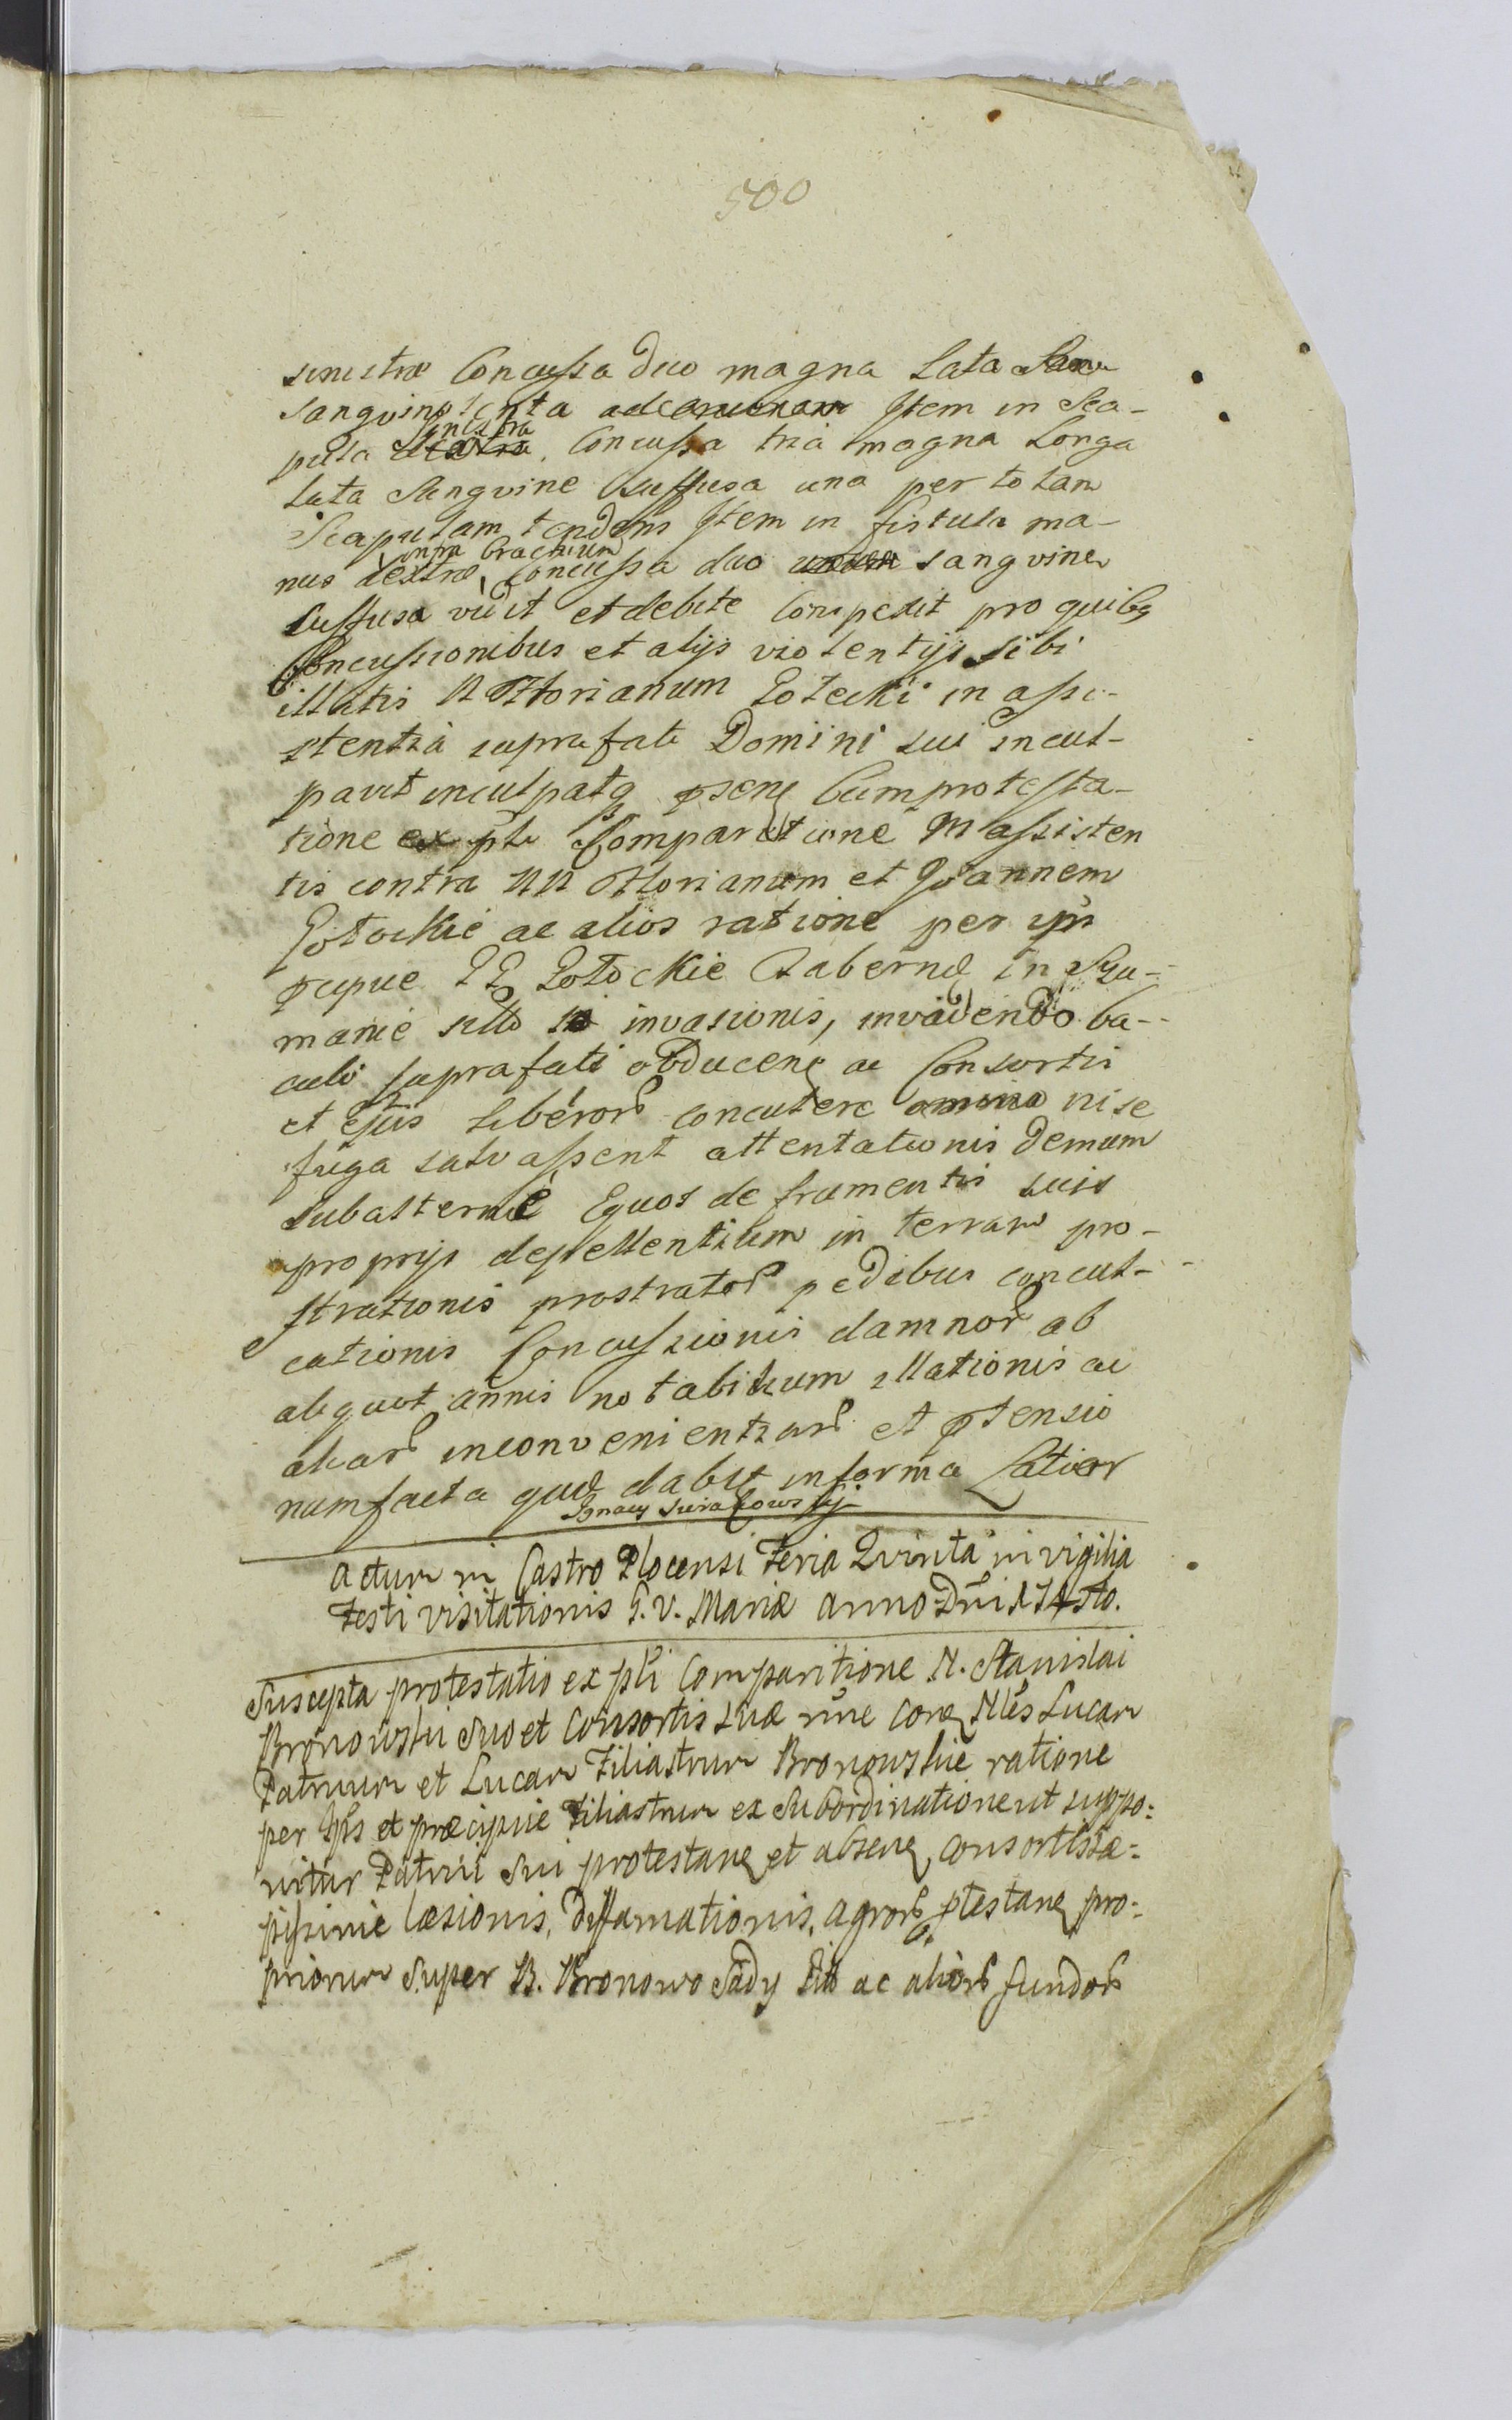 500
sinistræ Concussa duo magna Lata
sangvinolenta Item in Sca-
pula sinistra Concussa tria magna Longa
Lata Sangvine suffusa una per totam
Scapulam tendens Item in fistula ma-
nus dextræ supra brachium Concussa duo sangvine
suffusa vidit et debite Comperit pro quibq
Concussionibus et alijs violentijs sibi
illatis N Florianum Potocki in assi-
stentia suprafati Domini sui incul-
pavit inculpatq psenq Cum protesta-
tione ex pti Comparitione M assisten
tis contra NN Florianum et Joannem
Potockie ac alios ratione per ipsos
pcipue PP Potockie Tabernæ in Szu-
manie sitto invasionis, invadendo ba-
culi suprafati obducenq ac Consortis
et ejus liberor concutere omnino nise
fuga salvassent attentationis demum
subalterne Equos de frumentis suis
proprijs depellentium in terram pro-
strationis prostrator pedibus concul-
cationis Concussionis damnor ab
aliquot annis notabilium illationis ac
aliar inconvenientiar et ptensio
num facta quæ dabit in forma Latior
Actum in Castro Plocensi Feria Qvinta in vigilia
Festi visitationis B. V. Mariæ Anno Dni 174sto.
Suscepta protestatio ex pti Comparitione N. Stanislai
Bronowski Suo et Consortis suæ nne cora Nles Lucam
Patruum et Lucam Filiastrum Bronowskie ratione
per Ipsos et præcipue Filiastrum ex Subordinatione ut suppo:
nitur Patrui Sui protestanq et absenq consortis sæ:
pissime læsionis, diffamationis, agror ptestanq pro:
priorum Super B. Bronowo Sady sito ac alior fundor